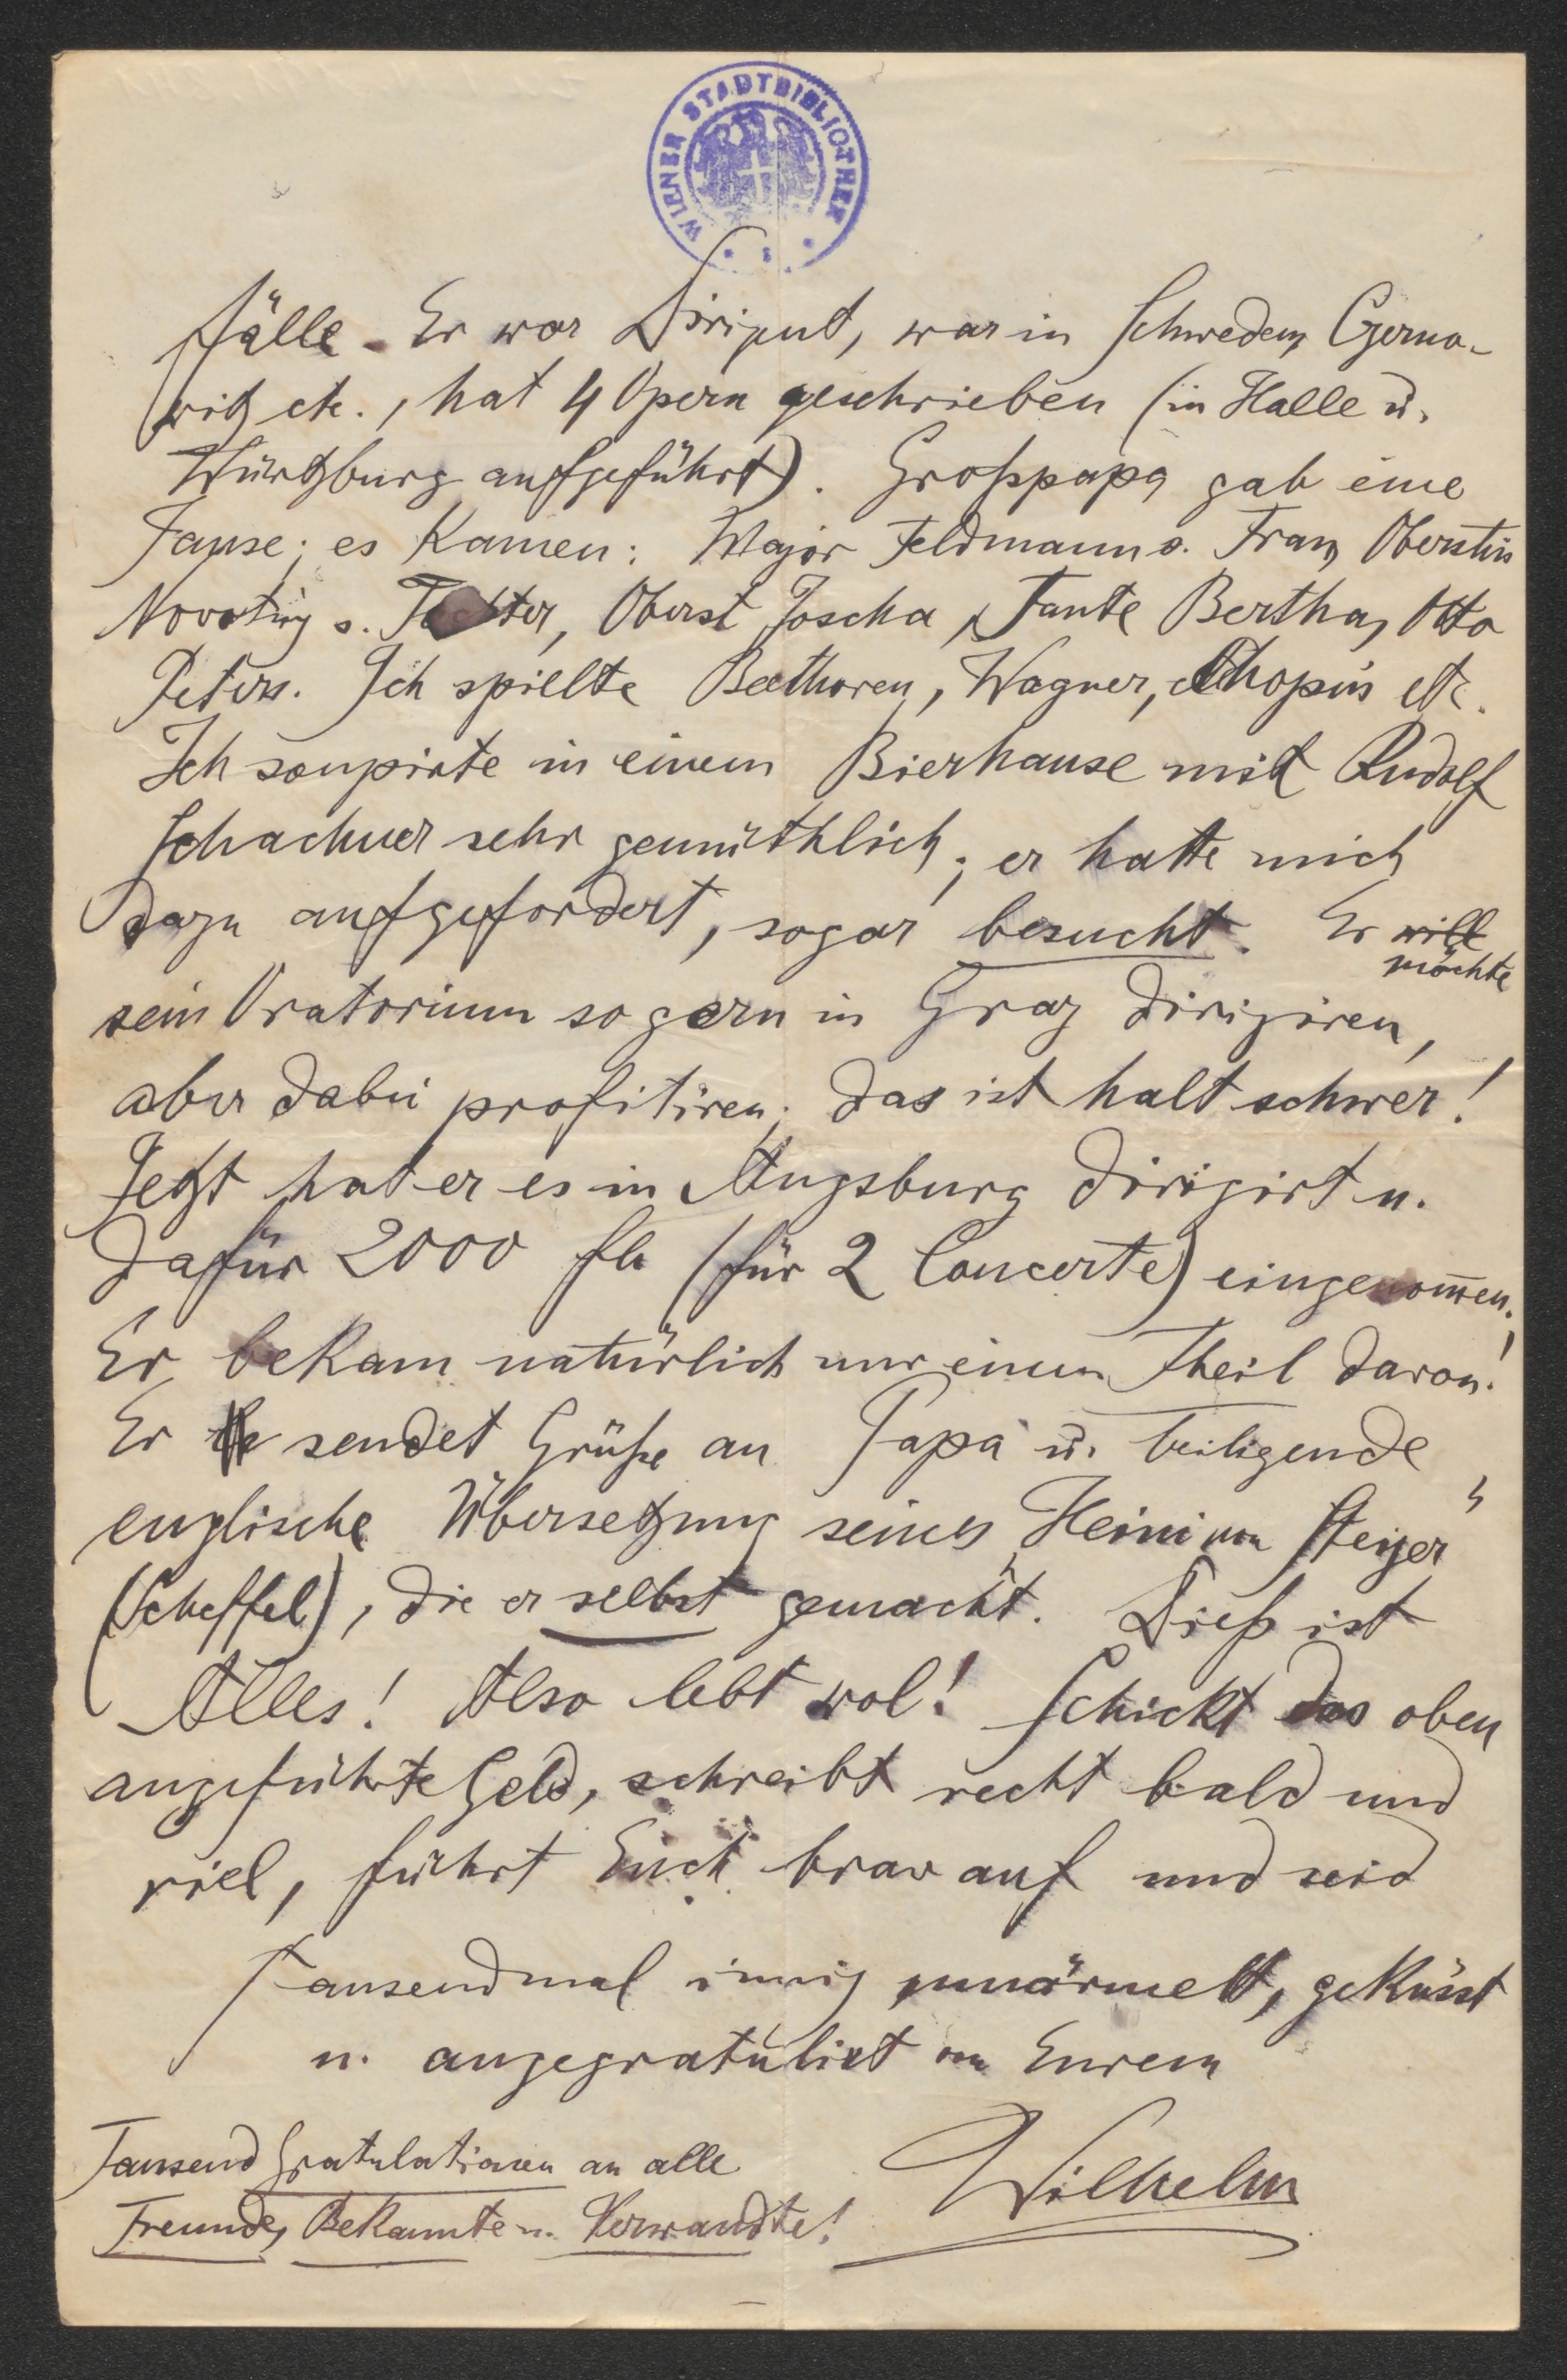 WIENER STADTBIBLIOTHEK
fälle. Er war Dirigent, war in Schweden, Czerno-
witz etc., hat 4 Opern geschrieben (in Halle u.
Würtzburg aufgeführt). Großpapa gab eine
Jause; es kamen: Major Feldmann s. Frau, Oberstin
Novotny s. Tochter, Oberst Joscha, Tante Bertha, Otto
Peters. Ich spielte Beethoven, Wagner, Chopin etc.
Ich soupirte in einem Bierhause mit Rudolf
Schachner sehr gemüthlich; er hatte mich
dazu aufgefordert, sogar besucht. Er will
möchte
sein Oratorium so gern in Graz dirigiren,
aber dabei profitiren; das ist halt schwer!
Jetzt hat er es in Augsburg dirigirt u.
dafür 2000 fl (für 2 Concerte) eingenom̅en.
Er bekam natürlich nur einen Theil davon!
Er sendet Grüße an Papa u. beiligende
englische Übersetzung seines „Heini von Steyer"
(Scheffel), die er selbst gemacht. Dieß ist
Alles! Also lebt wol! Schickt das oben
angeführte Geld, schreibt recht bald und
viel, führt Euch brav auf und seid
Tausendmal innig umärmelt, geküsst
u. angegratulirt von Eurem
Wilhelm
Tausend Gratulationen an alle
Freunde, Bekannte u. Verwandte!